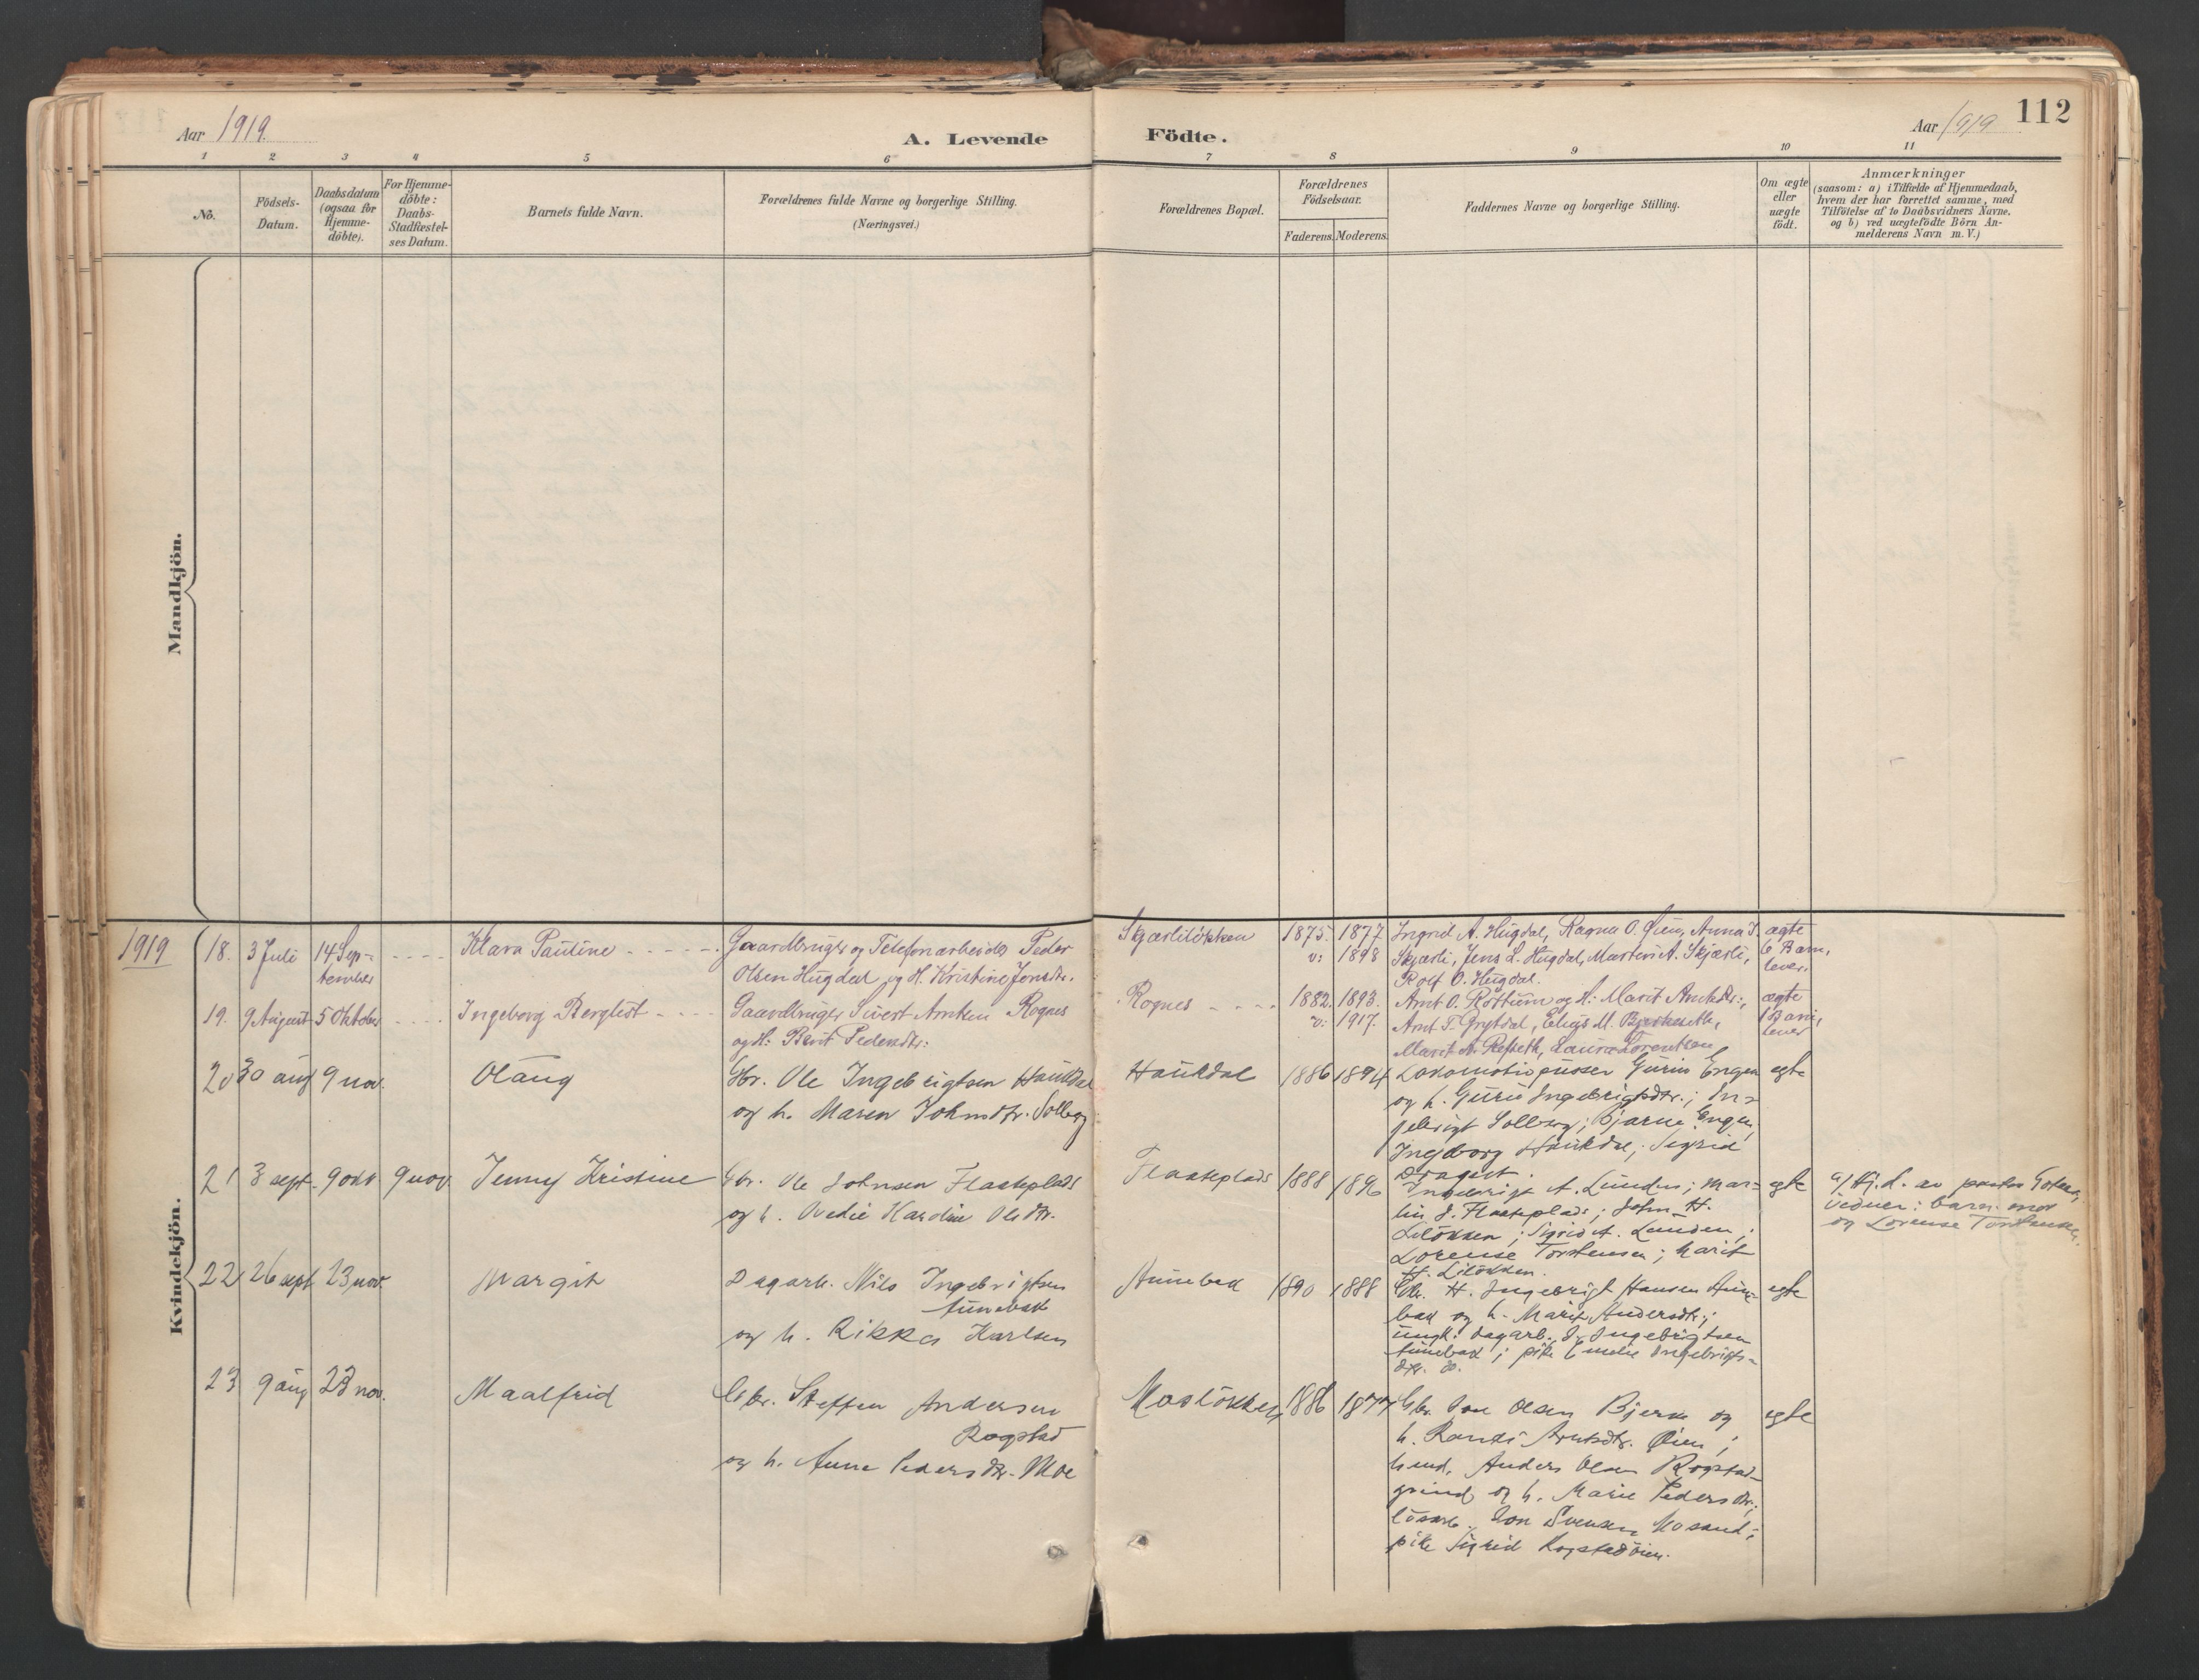 Aar 1919.
A. Levende
Födte.
Aar 1919
112
1 2 3 4 5 6 7 8 9 10 11
No.
Födsels-
Datum.
Daabsdatum
(ogsaa for
Hjemme-
döbte).
For Hjemme-
döbte:
Daabs-
Stadfæstel-
ses Datum.
Barnets fulde Navn.
Forældrenes fulde Navne og borgerlige Stilling.
(Næringsvei.)
Forældrenes Bopæl.
Forældrenes
Födselsaar.
Faderens. Moderens.
Faddernes Navne og borgerlige Stilling.
Om ægte
eller
uægte
födt.
Anmærkninger
(saasom: a) i Tilfælde af Hjemmedaab,
hvem der har forrettet samme, med
Tilföielse af to Daabsvidners Navne,
og b) ved uægtefödte Börn An-
melderens Navn m. V.)
Mandkjön.
Kvindekjön.
1919
18. 3 Juli 14 Sep-
tember
Klara Pauline
Gaardbruger og Telefonarbeider Peder
Olsen Hugdal og H. Kristine Jonsdtr.
Skjærlilökken
1875. 1877
v: 1898
Ingrid A. Hugdal, Ragna O. Öien, Anna J.
Skjærli, Jens L. Hugdal, Martin A. Skjærli,
Rolf O. Hugdal.
ægte
6 Barn,
lever.
19. 9 August 5 Oktober
Ingeborg Bergljot
Gaardbruger Sivert Arntsen Rognes
og H: Berit Pedersdtr:
Rognes
1882. 1893.
v: 1917.
Arnt O. Rostum og H: Marit Arntsdtr:,
Arnt T. Grytdal, Elias M.
Marit A. Refseth, Laura Lorentsen
ægte
1 Barn,
lever
20 30 aug 9 nov.
Olaug
Gbr. Ole Ingebrigtsen Haukdal
og h. Maren Johnsdtr. Solberg
Haukdal
1886 1894
Lokomotivpusser Gurius Engen
og h. Guru Ingebrigtsdtr.; In-
gebrigt Solberg; Bjarne Engen,
Ingeborg Haukdal; Sigrid
Draget.
egte
21 3 sept. 9 okt 9 nov.
Jenny Kristine
Gbr. Ole Johnsen Flaateplads
og h. Ovedie Hardine Olsdtr.
Flaateplads
1888 1896
Ingebrigt A. Lunden; Mar-
lin J. Flaateplads; John H.
Lilökken; Sigrid A. Lunden;
Lorense Torstensen; Marit
H. Lilökken.
egte
a/ Hj. d. av
vidner: barn. mor
og Lorense Torstensen.
22 26 sept 23 nov.
Margit
Dagarb. Nils Ingebrigtsen
Aunebak
og h. Rikka Karlsen
Aunebak
1890 1888
Gbr. H. Ingebrigt Hansen Aune-
bak og h. Marit Andersdtr.;
ungk. dagarb. J. Ingebrigtsen
Aunebak; pike Emelie Ingebrigts-
dtr. do.
egte
23 9 aug 23 nov.
Maalfrid
Gbr. Steffen Andersen
Rogstad
og h. Anne Pedersdtr. Moe
Moslökken
1886 1877
Gbr. Jon Olsen Bjerke og
h. Randi Arntsdtr. Öien;
husmd. Anders Olsen Rogstad-
grind og h. Marie Pedersdtr.;
lösarb. Jon Svensen Mosand;
pike Sigrid Rogstadöien.
egte